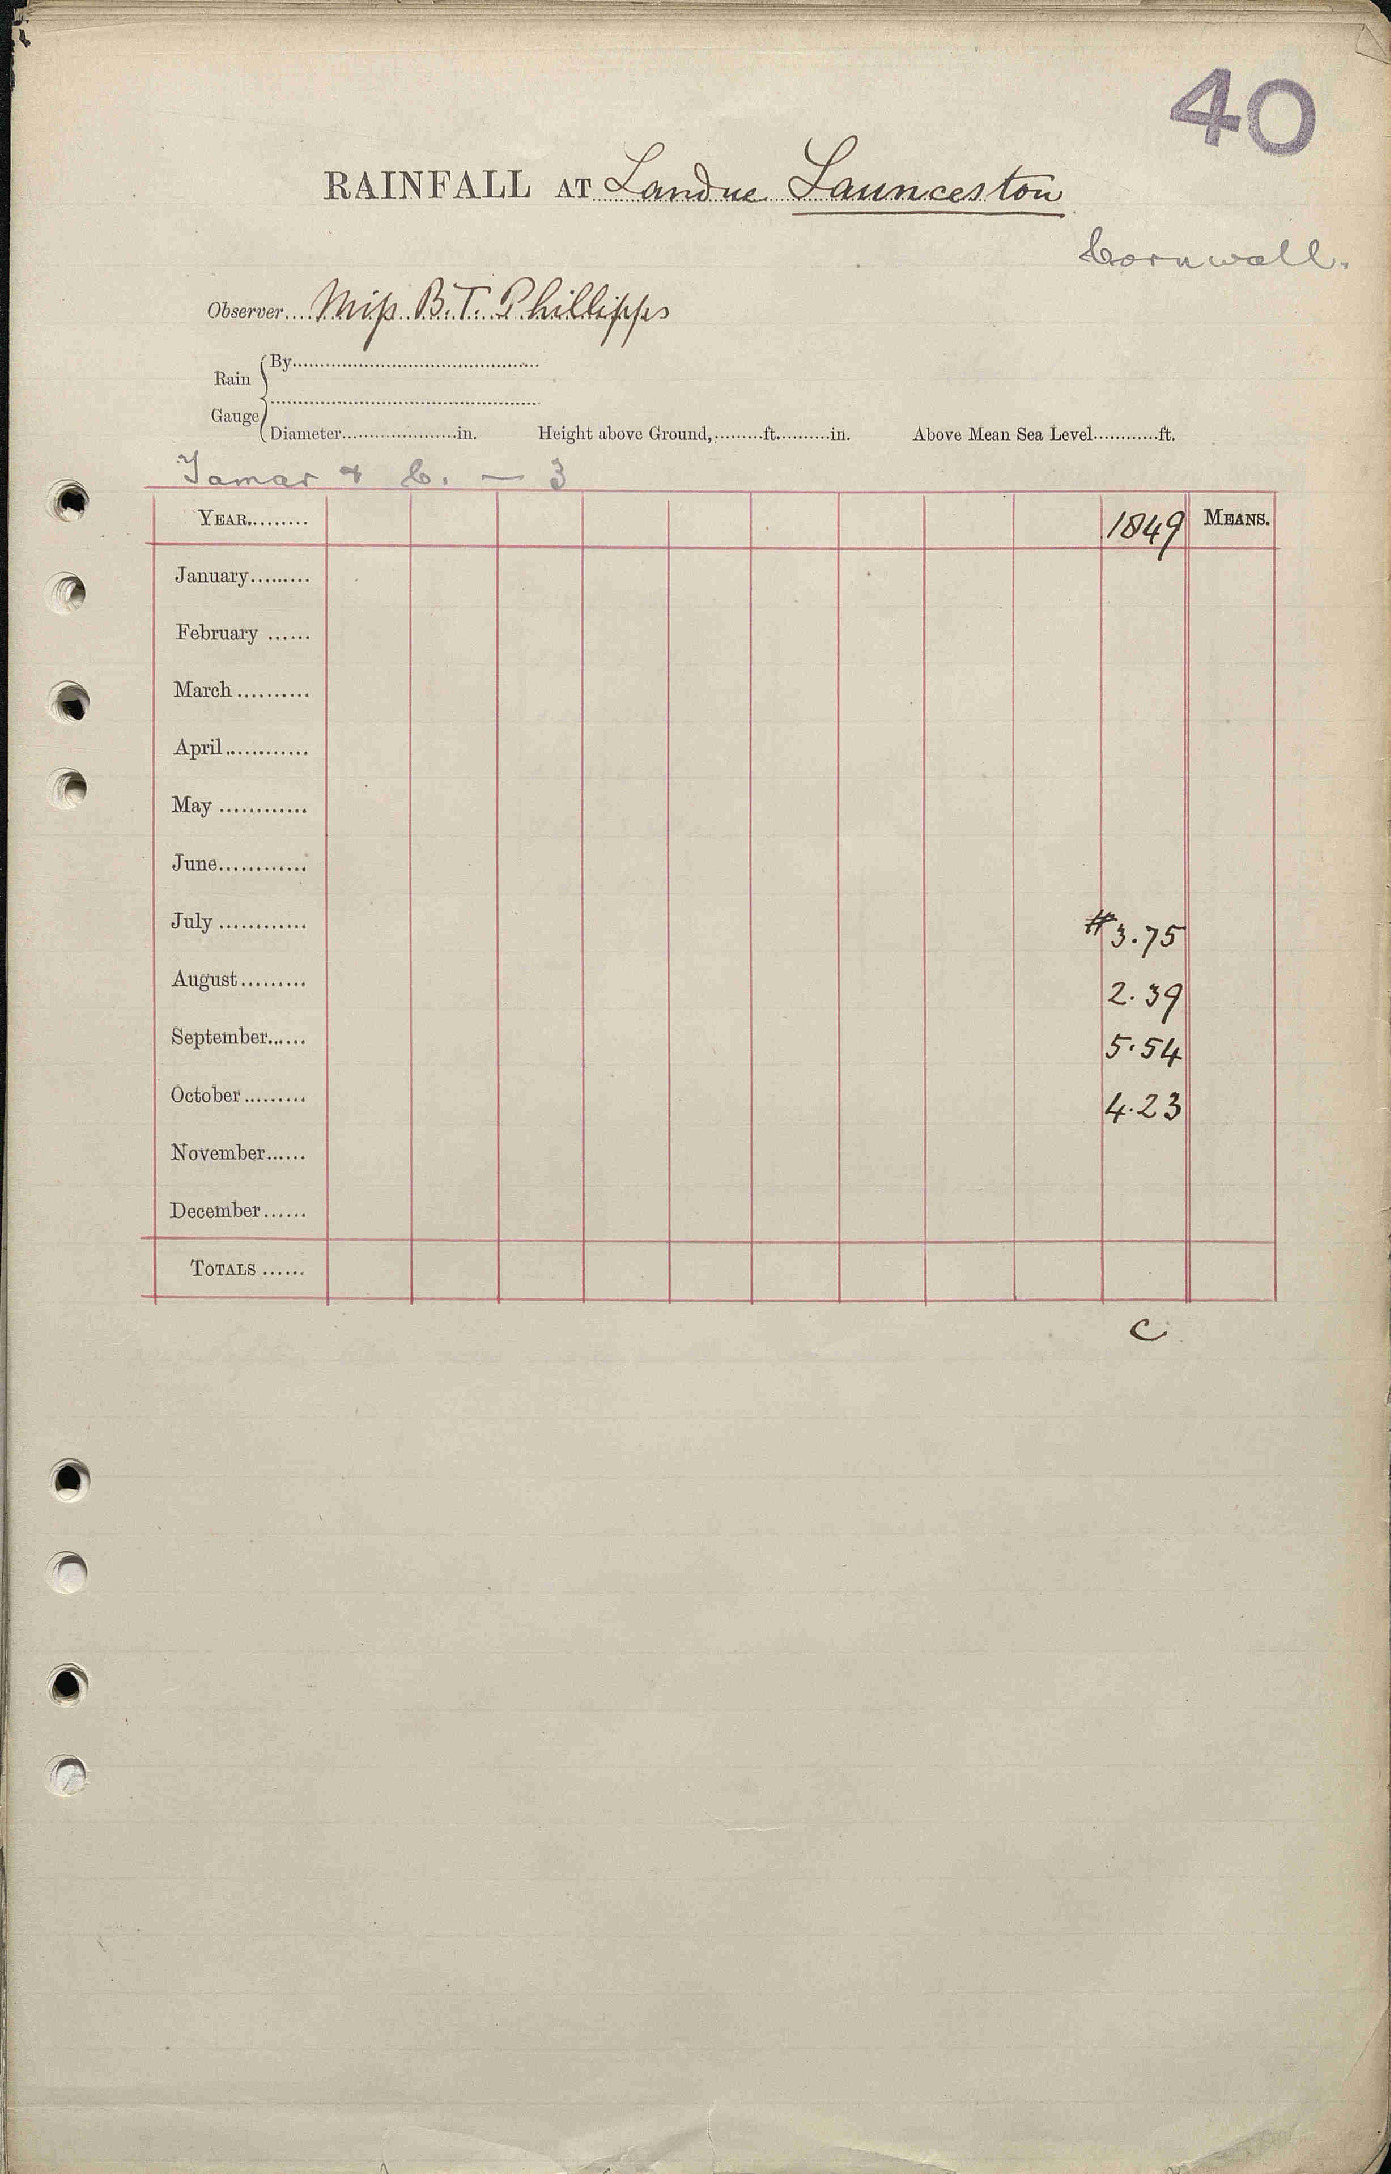 40
RAINFALL AT Landue Launceston
Cornwall.
Observer.... Miss B.T. Phillipps
Rain Gauge { By..........
Diameter..........in. Height above Ground,.........ft..........in. Above Mean Sea Level............ft.
Tamar & C. — 3
YEAR......... 1849 MEANS.
January.........
February ......
March ..........
April............
May ............
June............
July ............ # 3.75
August......... 2.39
September...... 5.54
October ......... 4.23
November......
December......
TOTALS ......
C